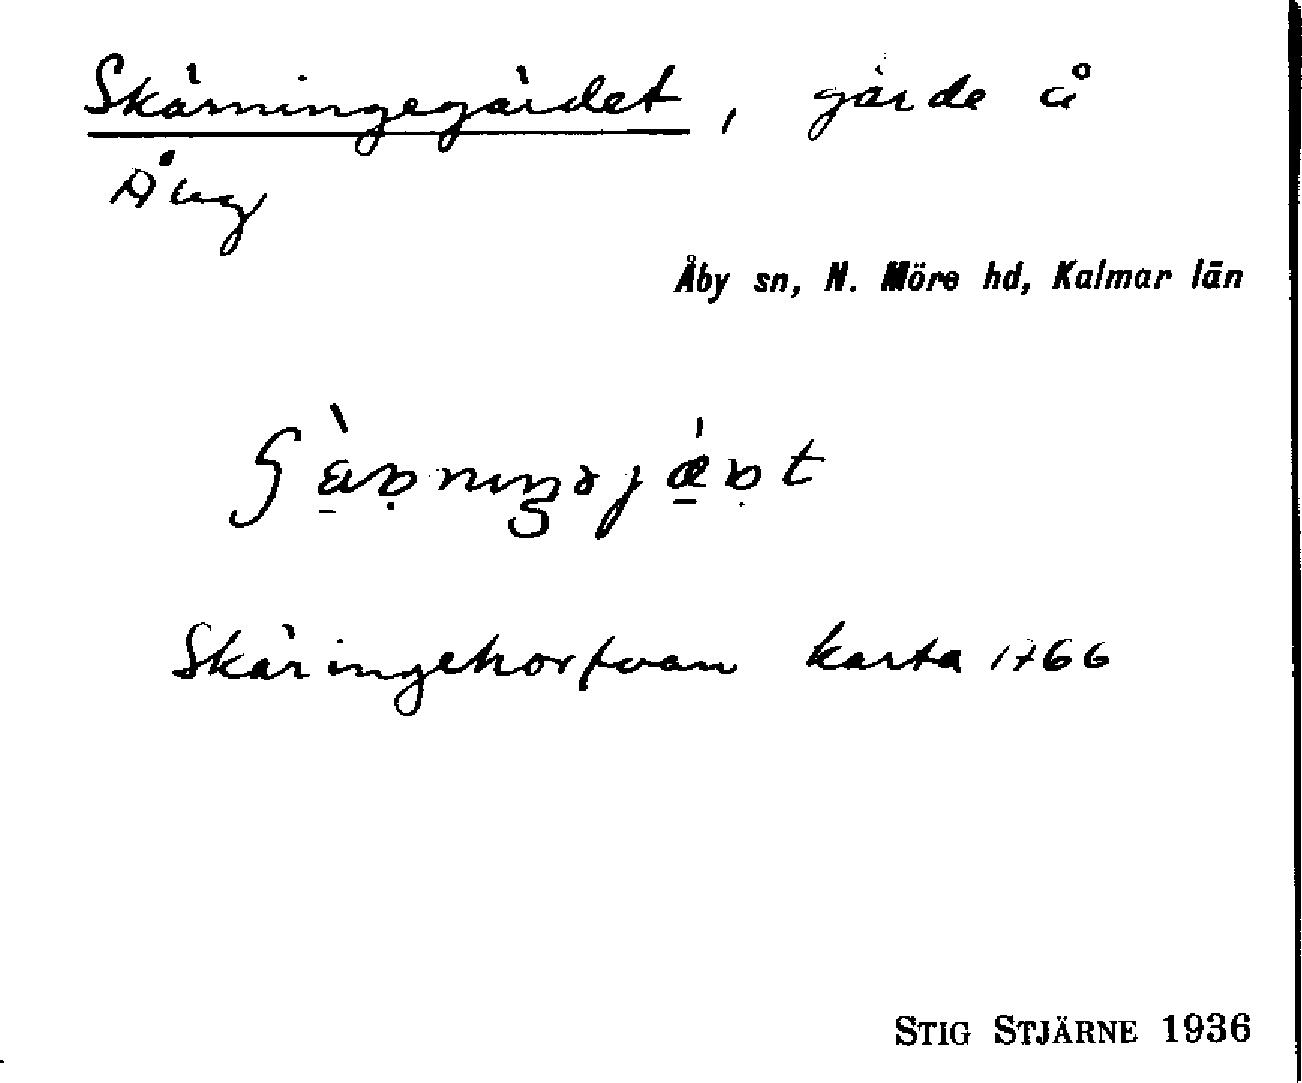 Skärningegärdet, gärde å
Åby
Åby sn, N. Möre hd, Kalmar län
Skäringehorfvan karta 1766
STIG STJÄRNE 1936